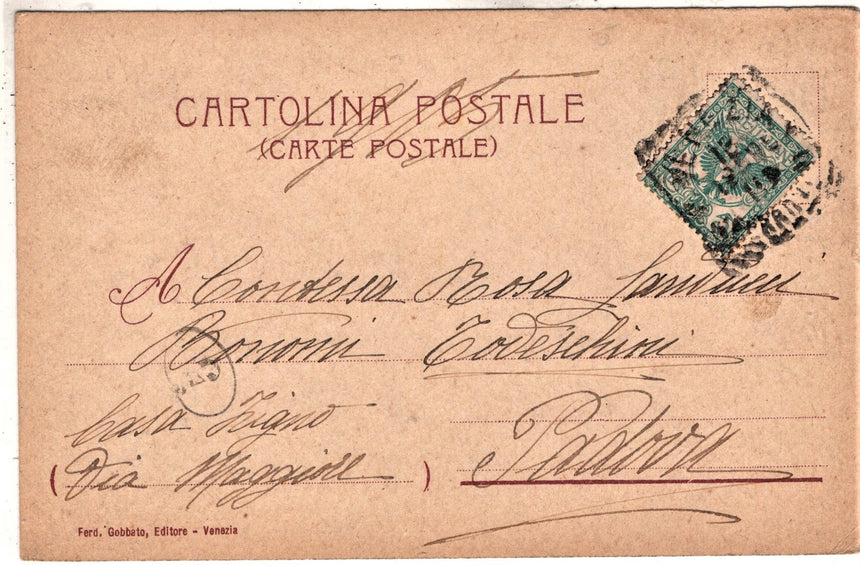 CARTOLINA POSTALE
(CARTE POSTALE)
1905
VENEZIA
12
A Contessa Rosa
Bonomi Todeschini
Casa Zigno
(Via Maggiore)
Padova
Ferd. Gobbato, Editore - Venezia